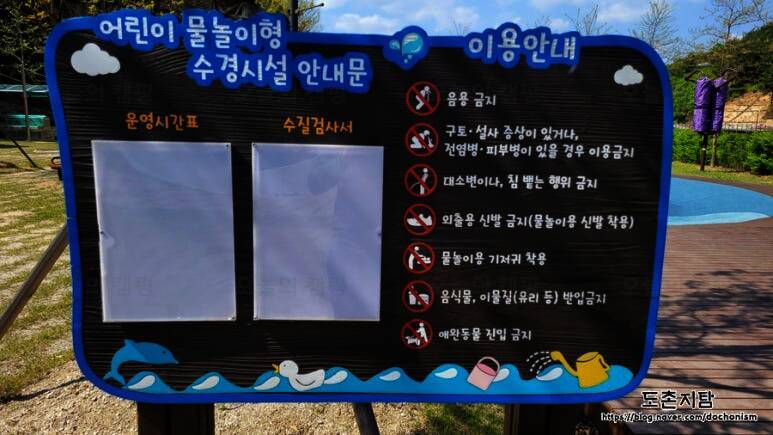 어린이 물놀이형
수경시설 안내문
운영시간표
수질검사서
이용안내
음용 금지
구토·설사 증상이 있거나,
전염병·피부병이 있을 경우 이용금지
대소변이나, 침 뱉는 행위 금지
외출용 신발 금지(물놀이용 신발 착용)
물놀이용 기저귀 착용
음식물, 이물질(유리 등) 반입금지
애완동물 진입 금지
도촌지탐
https://blog.naver.com/dochonism